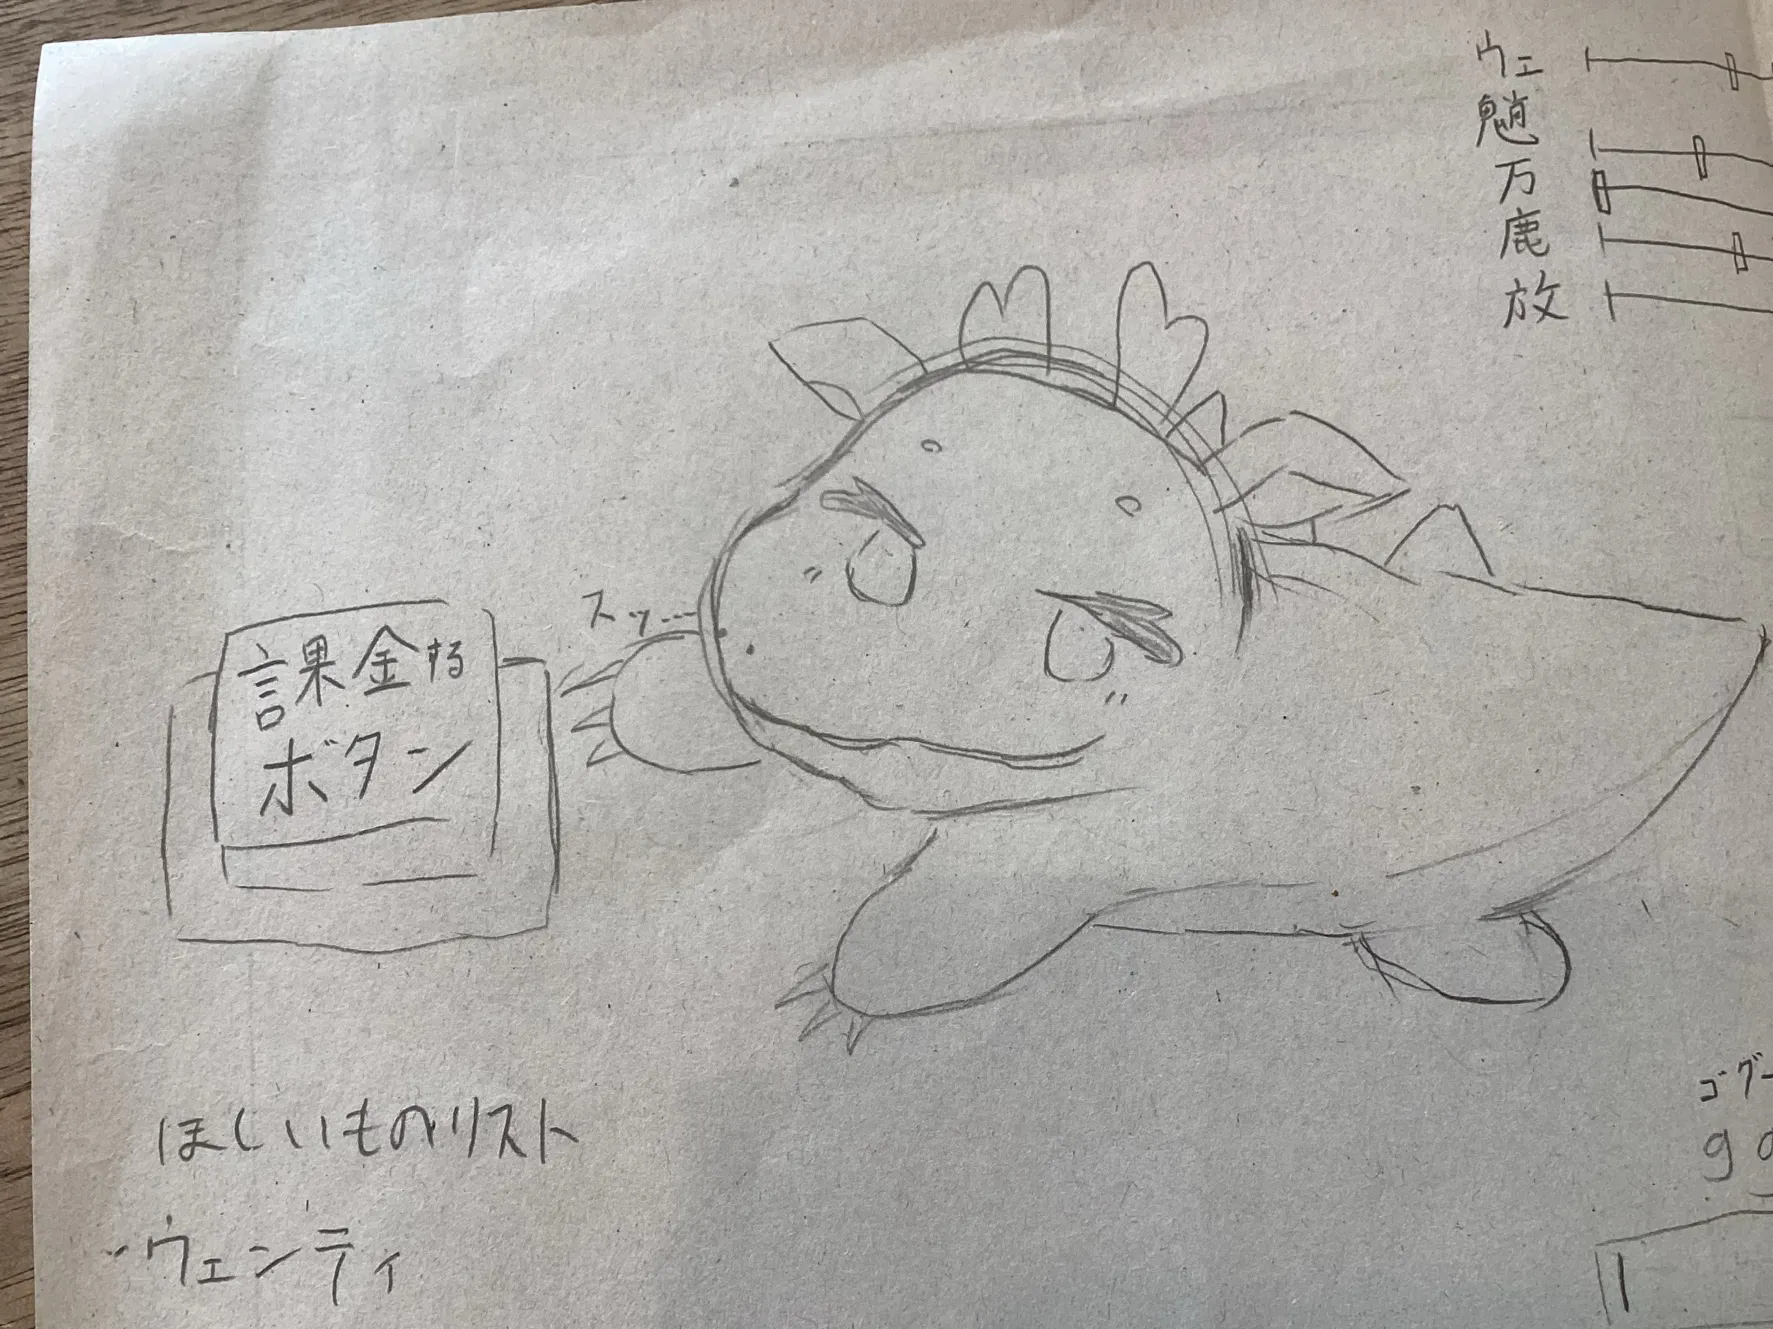 ウェ
魈
万
鹿
放
スッ…
課金する
ボタン
ほしいものリスト
・ウェンティ
ゴグー
go
1